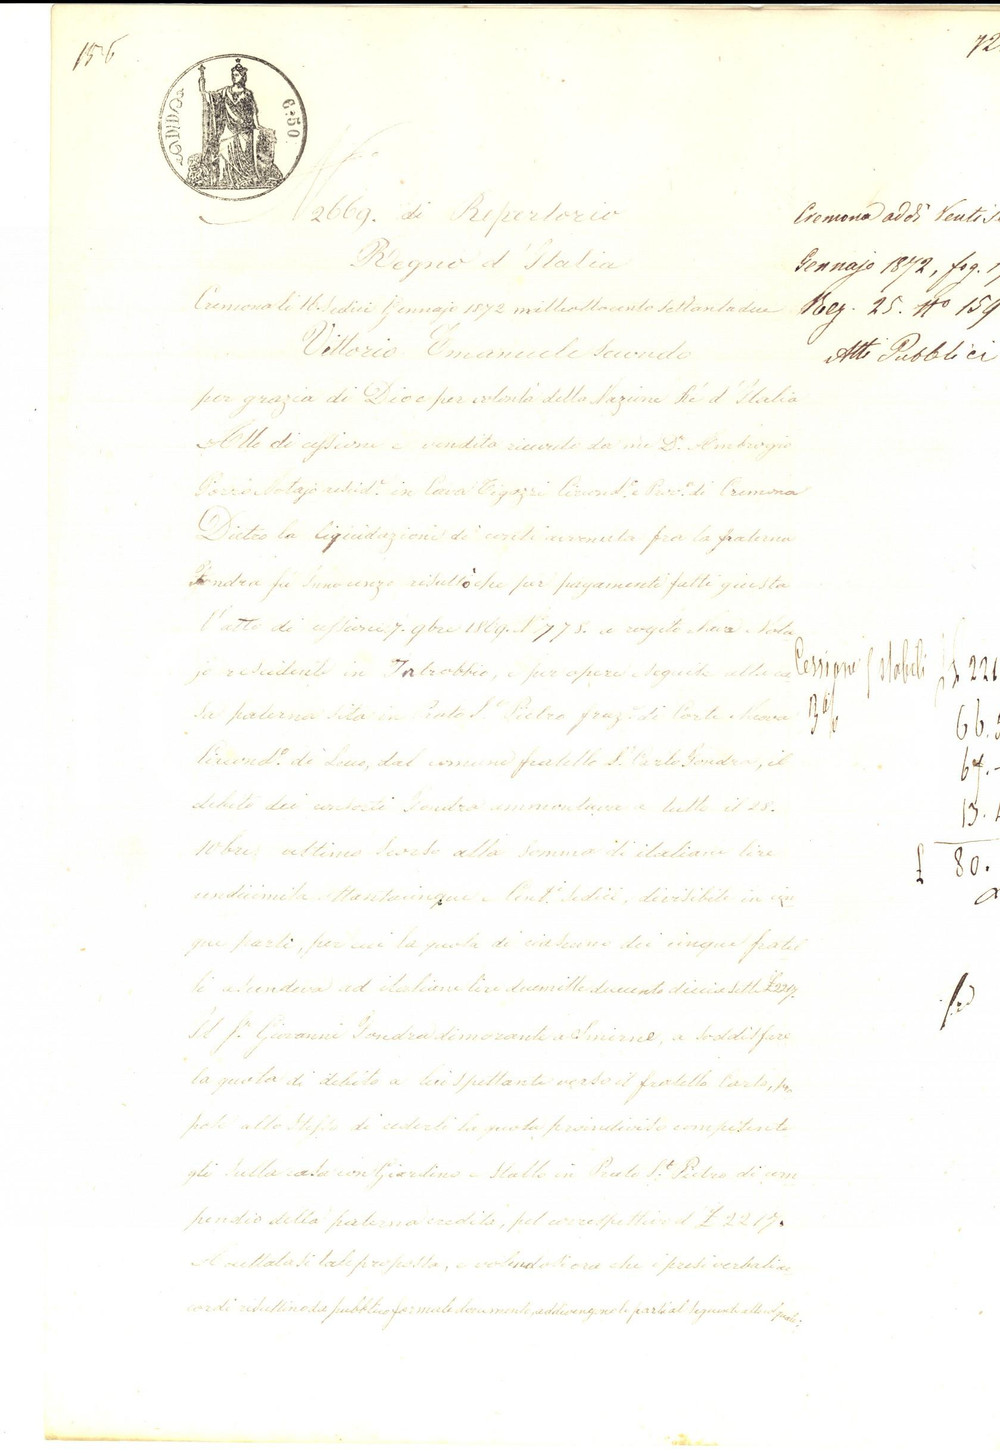 156
72
6:50
N 2669. di Repertorio
Regno d'Italia
Cremona li 16. Sedici Gennajo 1872 milleottocento settantadue
Vittorio Emanuele Secondo
per grazia di Dio e per volontà della Nazione Ré d'Italia
Atto di cessione e vendita ricevuto da me D.r Ambrogio
Notajo resid.e in Cava Tigozzi Circond.o e Prov.a di Cremona
Dietro la liquidazione di conti avvenuta fra la fraterna
Fondra fu Innocenzo risultò che per pagamenti fatti giusta
l'atto di cessione 7. 9bre 1869. N.o 775. a rogito Nota
jo residente in Introbbio, e per opere eseguite alla ca
sa paterna sita in Prato S.n Pietro fraz.e di Corte Nuova
Circond.o di Lecco, dal comune fratello S.r Carlo Fondra, il
debito dei consorti Fondra ammontava a tutto il 28.
10bre ultimo scorso alla somma di italiane lire
undicimila ottantacinque e Cent.i Sedici, divisibile in cin
que parti, per cui la quota di ciascuno dei cinque fratel
li ascendeva ad italiane lire duemille duecento diciasette £2217.
Il S.r Giovanni Fondra dimorante a Smirne, a soddisfare
la quota di debito a lui spettante verso il fratello Carlo, pro
pose allo stesso di cederli la quota proindivisa competente
gli sulla casa con Giardino e Stalla in Prato S.t Pietro di com
pendio della paterna eredità, pel correspettivo di £ 2217.
Accettatasi tale proposta, e volendosi ora che i presi verbali ac
cordi risultino da pubblico formale documento, addivengono le parti al seguente atto col quale:
Cremona addì
Gennajo 1872, fog. 1
Reg. 25. No 159
Atti Pubblici
Cessione stabili £ 221
3 %
66.
67.-
13.
£ 80.